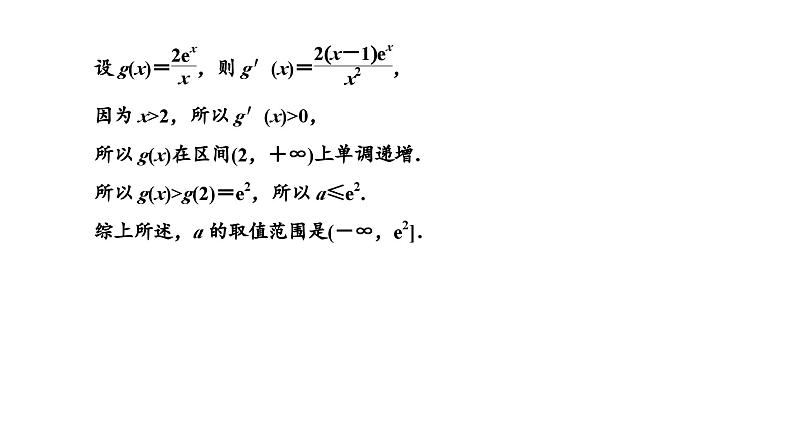 设 g(x)=2eˣ/x，则 g′(x)=2(x−1)eˣ/x²，
因为 x>2，所以 g′(x)>0，
所以 g(x)在区间(2，＋∞)上单调递增．
所以 g(x)>g(2)＝e²，所以 a≤e²．
综上所述，a 的取值范围是(－∞，e²]．